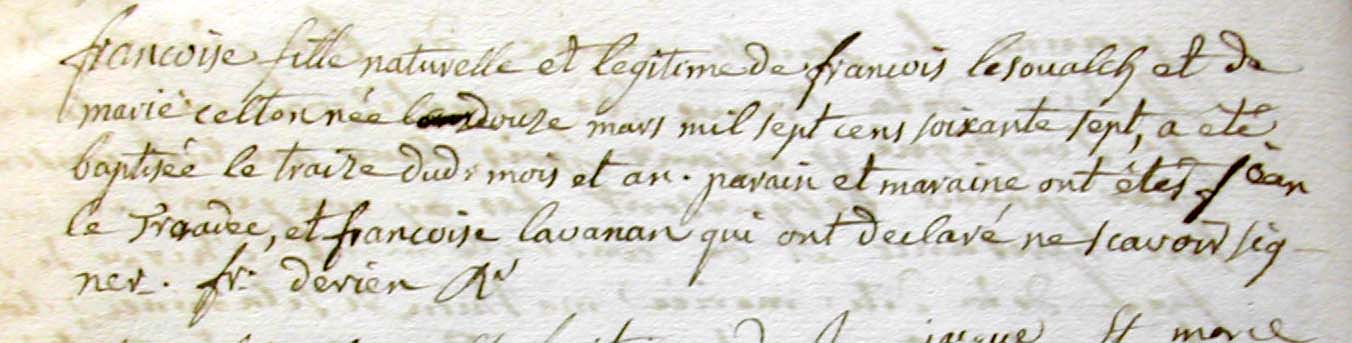 francoise fille naturelle et legitime de francois lesoualch et de
marie celton née douze mars mil sept cens soixante sept, a eté
baptisée le traize dudr mois et an. parain et maraine ont étés jean
le Troadec, et francoise lavanan qui ont declaré ne scavoir sig-
ner. fr. derien
et marie